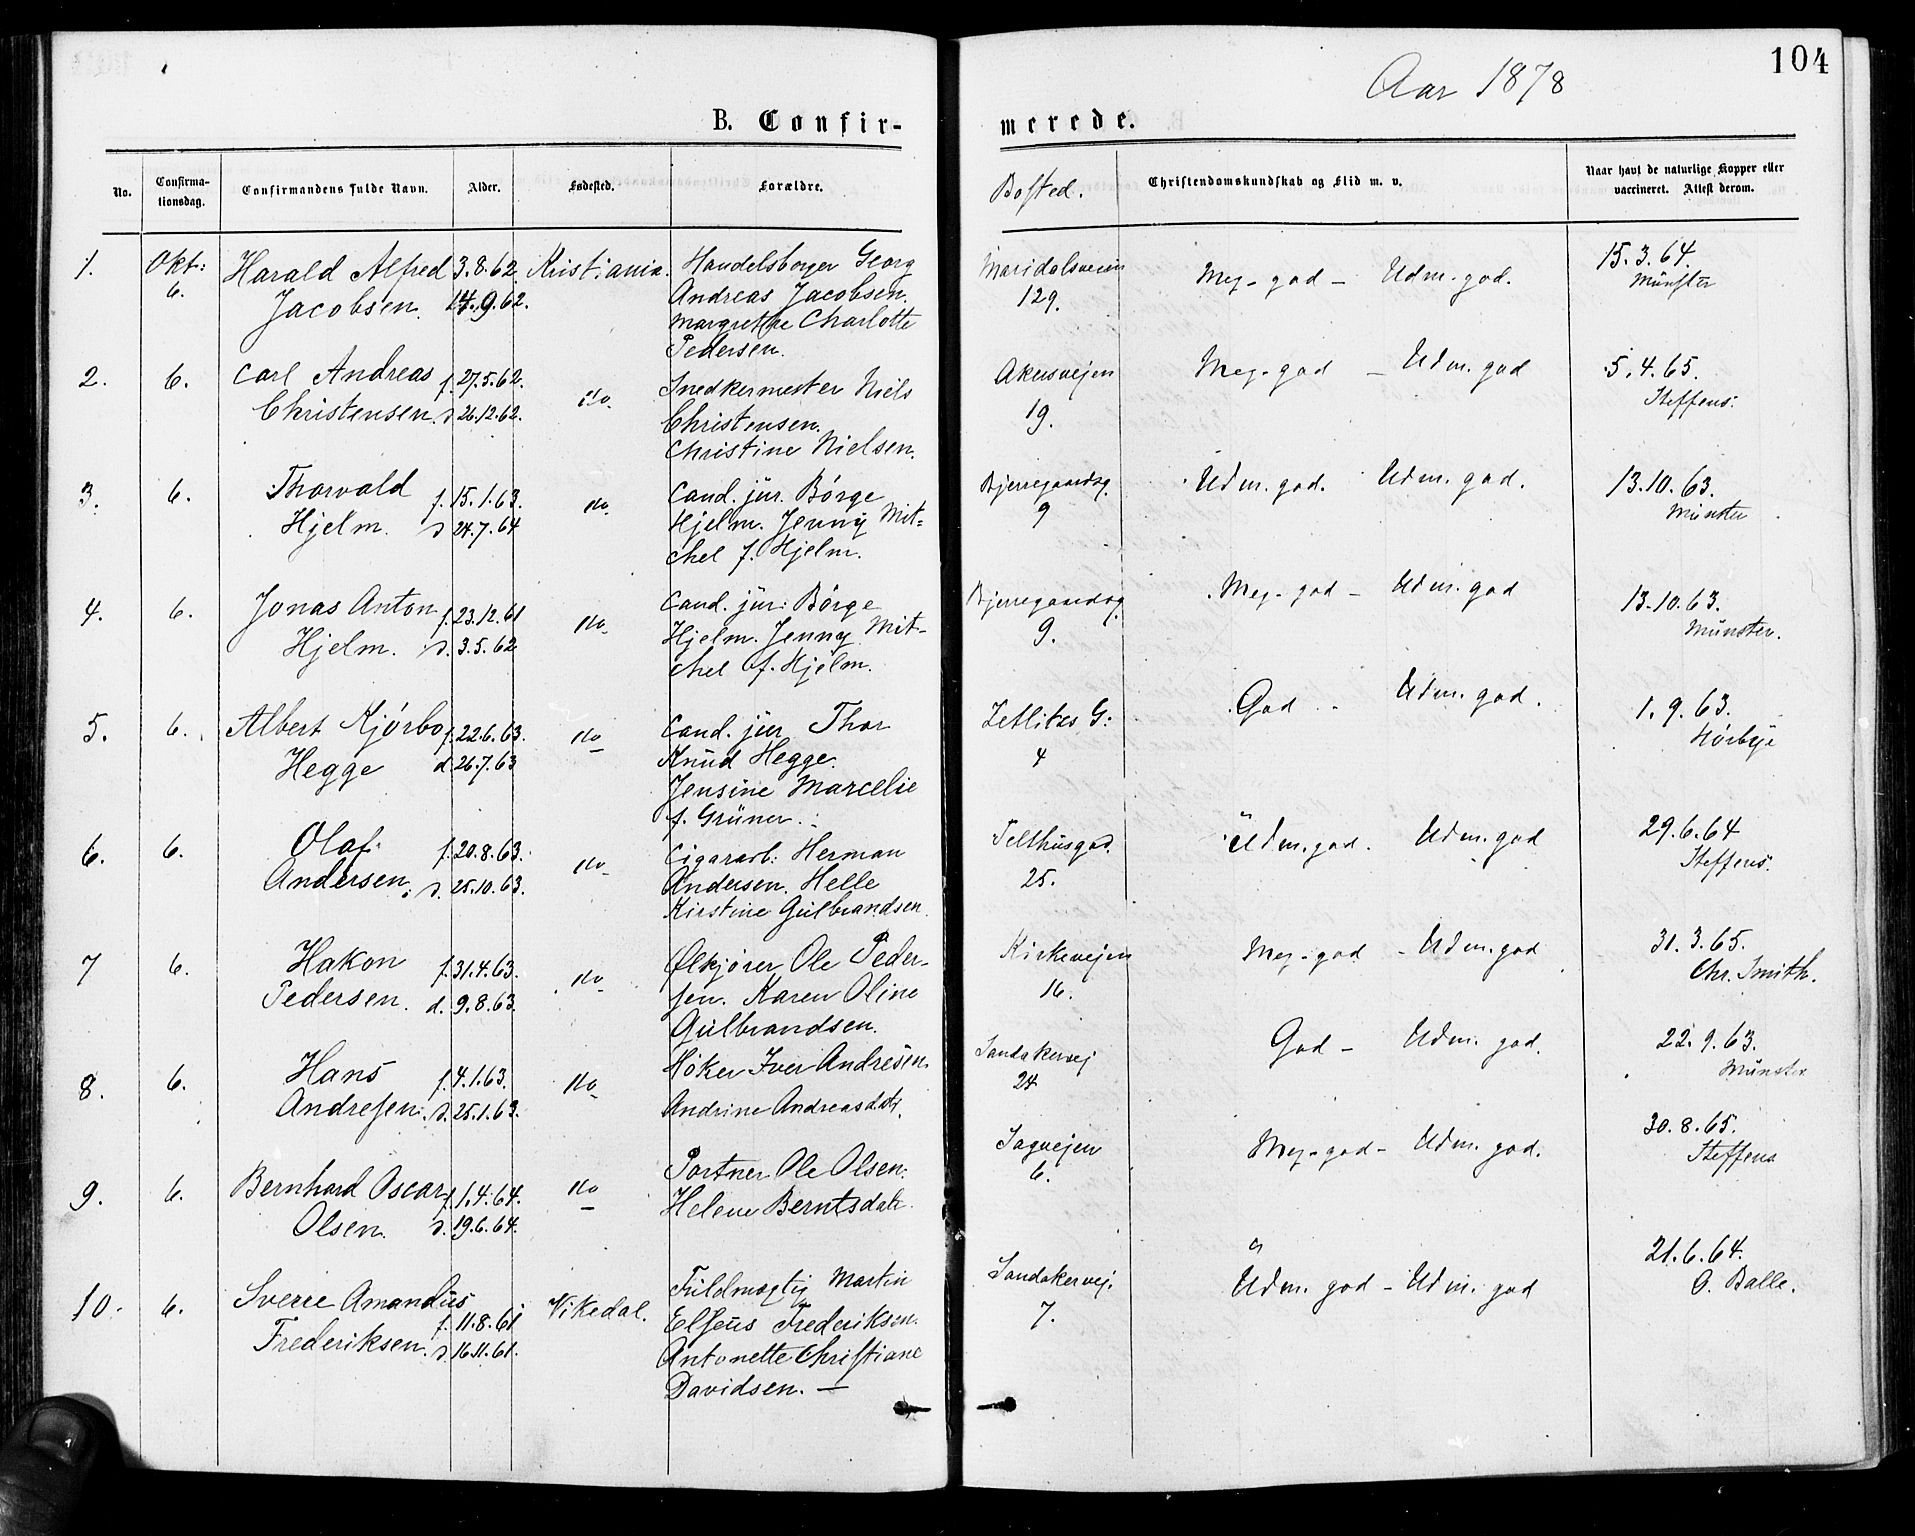 104
Aar 1878
B. Confir-
merede.
No.
Confirma-
tionsdag.
Confirmandens fulde Navn.
Alder.
Fødested.
Forældre.
Bosted.
Christendomskundskab og Flid m. v.
Naar havt de naturlige Kopper eller
vaccineret. Attest derom.
1. Okt: Harald Alfred 3.8.62. Kristiania. Handelsborger Georg Maridalsveien Meg. god – Udm. god. 15.3.64
6. Jacobsen. 14.9.62. Andreas Jacobsen. 129. Münster
Margrethe Charlotte
Pedersen.
2. 6. Carl Andreas f. 27.5.62. do. Snedkermester Niels Akersvejen Meg. god – Udm. god 5.4.65.
Christensen. d. 26.12.62. Christensen. 19. Steffens.
Christine Nielsen.
3. 6. Thorvald f. 15.1.63. do. Cand. jur. Börge Bjerregaardsg. Udm. god. Udm. god. 13.10.63.
Hjelm. d. 24.7.64 Hjelm. Jenny Mit= 9 Münster
chel f. Hjelm.
4. 6. Jonas Anton f. 23.12.61 do. Cand. jur: Börge Bjerregaardsg. Meg. god – Udm. god 13.10.63.
Hjelm. d. 3.5.62 Hjelm. Jenny Mit- 9. Münster.
chel f. Hjelm.
5. 6. Albert Kjörbo f. 22.6.63. do Cand. jur Thor Zetlitzs G: God Udm. god. 1.9.63.
Hegge d. 26.7.63 Knud Hegge. 4 Hörbye
Jensine Marcelie
f. Grüner.
6. 6. Olaf f. 20.8.63. do. Cigararb: Herman Telthusgad. Udm. god. Udm. god 29.6.64
Andersen. d. 25.10.63. Andersen. Helle 25. Steffens.
Kirstine Gulbrandsen.
7 6. Hakon f. 31.4.63. do. Ølkjörer Ole Peder- Kirkevejen Meg. god – Udm. god 31.3.65.
Pedersen. d. 9.8.63. sen. Karen Oline 16. Chr. Smith.
Gulbrandsen.
8. 6. Hans f. 4.1.63. do. Höker Iver Andresen. Sandakervej God – Udm. god. 22.9.63.
Andresen. d. 25.1.63. Andrine Andreasdatr. 24 Münster
9. 6. Bernhard Oscar f. 1.4.64. do Portner Ole Olsen. Sagvejen Meg. god – Udm. god. 30.8.65.
Olsen. d. 19.6.64. Helene Berntsdatr. 6. Steffens
10. 6. Sverre Amandus f. 11.8.61 Vikedal. Fuldmægtig Martin Sandakervej. Udm. god – Udm. god 21.6.64.
Frederiksen. d. 16.11.61. Elseus Frederiksen. 7. O. Balle.
Antonette Christiane
Davidsen. –